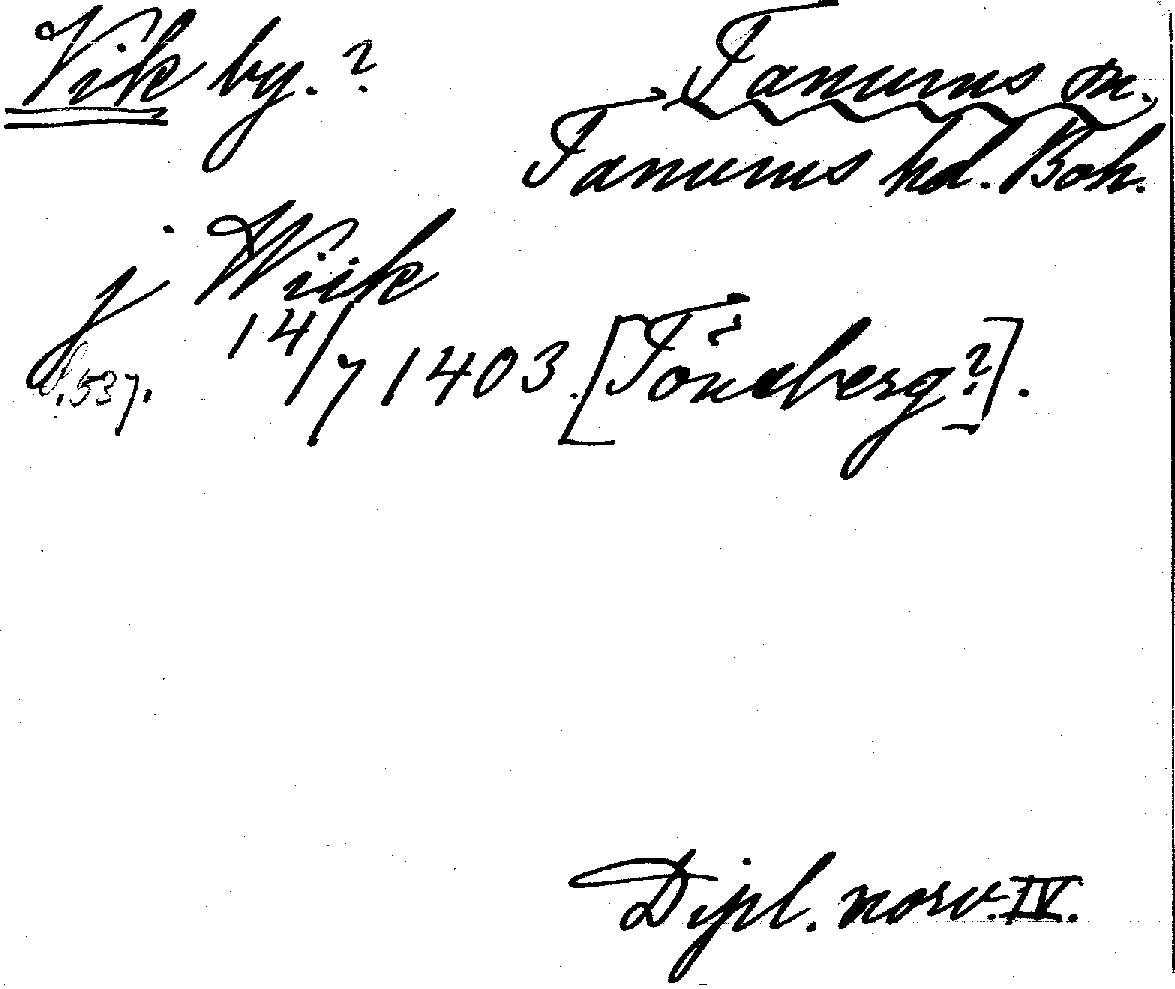 Vik by.?
Tanums sn.
Tanums hd. Boh.
j Wiik
s. 537. 14/7 1403 [Tönsberg?].
Dipl. norv. IV.